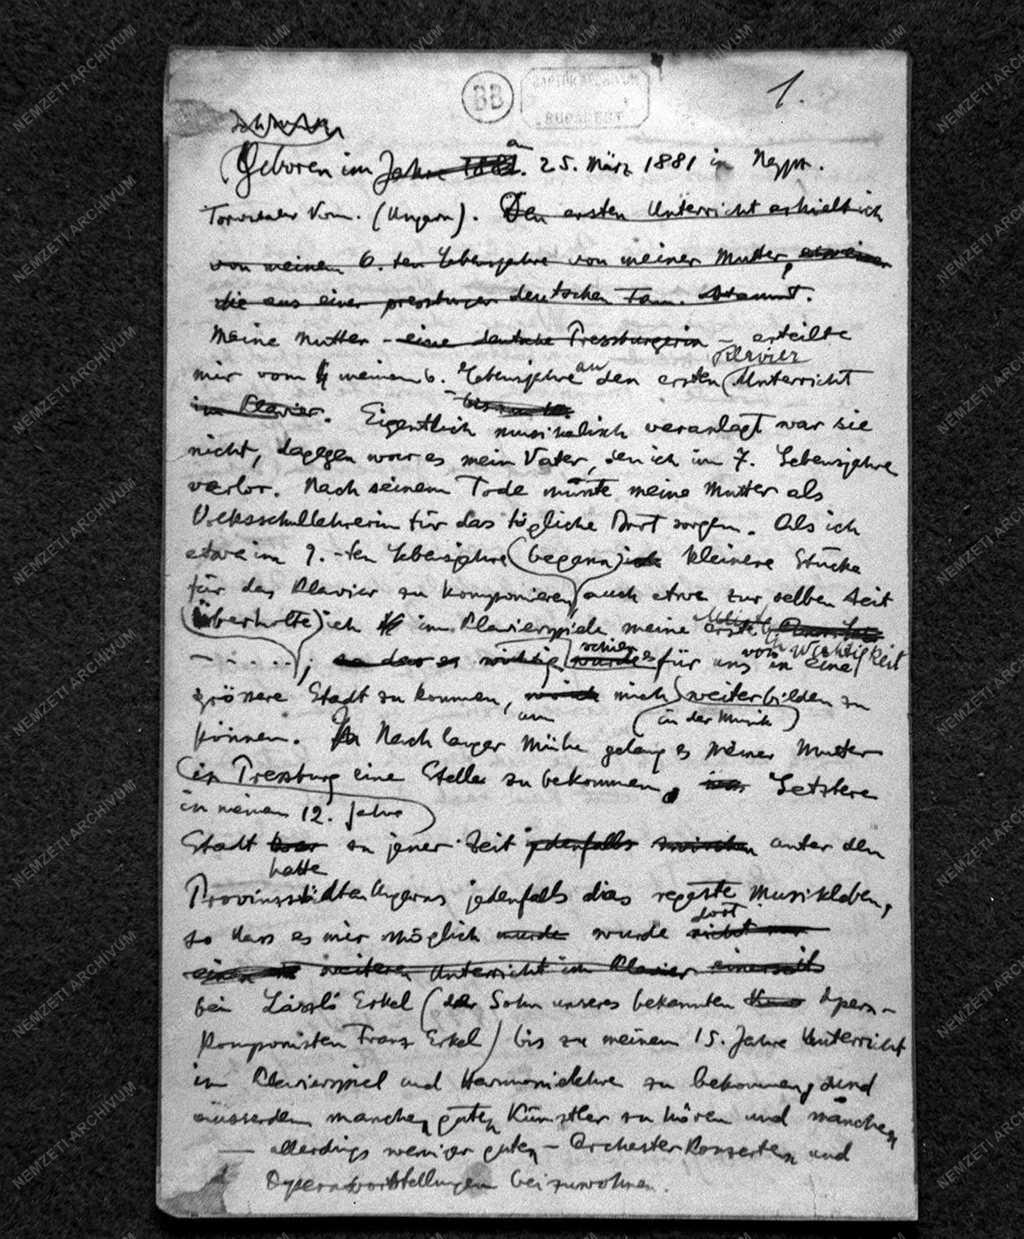 1.
BB
BUDAPEST
am
Geboren im Jahre 1881. 25. März 1881 in Nagysz.
Torontaler Kom. (Ungarn). Den ersten Unterricht erhielt ich
von meinem 6.ten Lebensjahre von meiner Mutter,
die aus einer pressburger deutschen Fam. stammt.
Meine Mutter – eine deutsche Pressburgerin – erteilte
Klavier
mir vom meinem 6. Lebensjahre an den ersten Unterricht
im Klavier. Eigentlich musikalisch veranlagt war sie
nicht, dagegen war es mein Vater, den ich im 7. Lebensjahre
verlor. Nach seinem Tode müsste meine Mutter als
Volksschullehrerin für das tägliche Brot sorgen. Als ich
etwa im 9.-ten Lebensjahre begann ich kleinere Stücke
für das Klavier zu komponieren, auch etwa zur selben Zeit
überholte ich im Klavierspiele meine erste
– . . . . , so dass es wichtig wurde schien es für uns von Wichtigkeit in eine
grössere Stadt zu kommen, mich weiterbilden zu
um (in der Musik)
können. Nach langer Mühe gelang es meiner Mutter
in Pressburg eine Stelle zu bekommen, Letztere
in meinem 12. Jahre
Stadt war zu jener Zeit jedenfalls zwischen unter den
hatte
Provinzstädten Ungarns jedenfalls das regste Musikleben,
dort
so dass es mir möglich wurde wurde nicht nur
einen weiteren Unterricht im Klavier einerseits
bei László Erkel (der Sohn unseres bekannten Opern-
komponisten Franz Erkel) bis zu meinem 15. Jahre Unterricht
im Klavierspiel und Harmonielehre zu bekommen, und
ausserdem manchen guten Künstler zu hören und manchen
— allerdings weniger guten – Orchesterkonzerten und
Opernvorstellungen beizuwohnen.
NEMZETI ARCHÍVUM